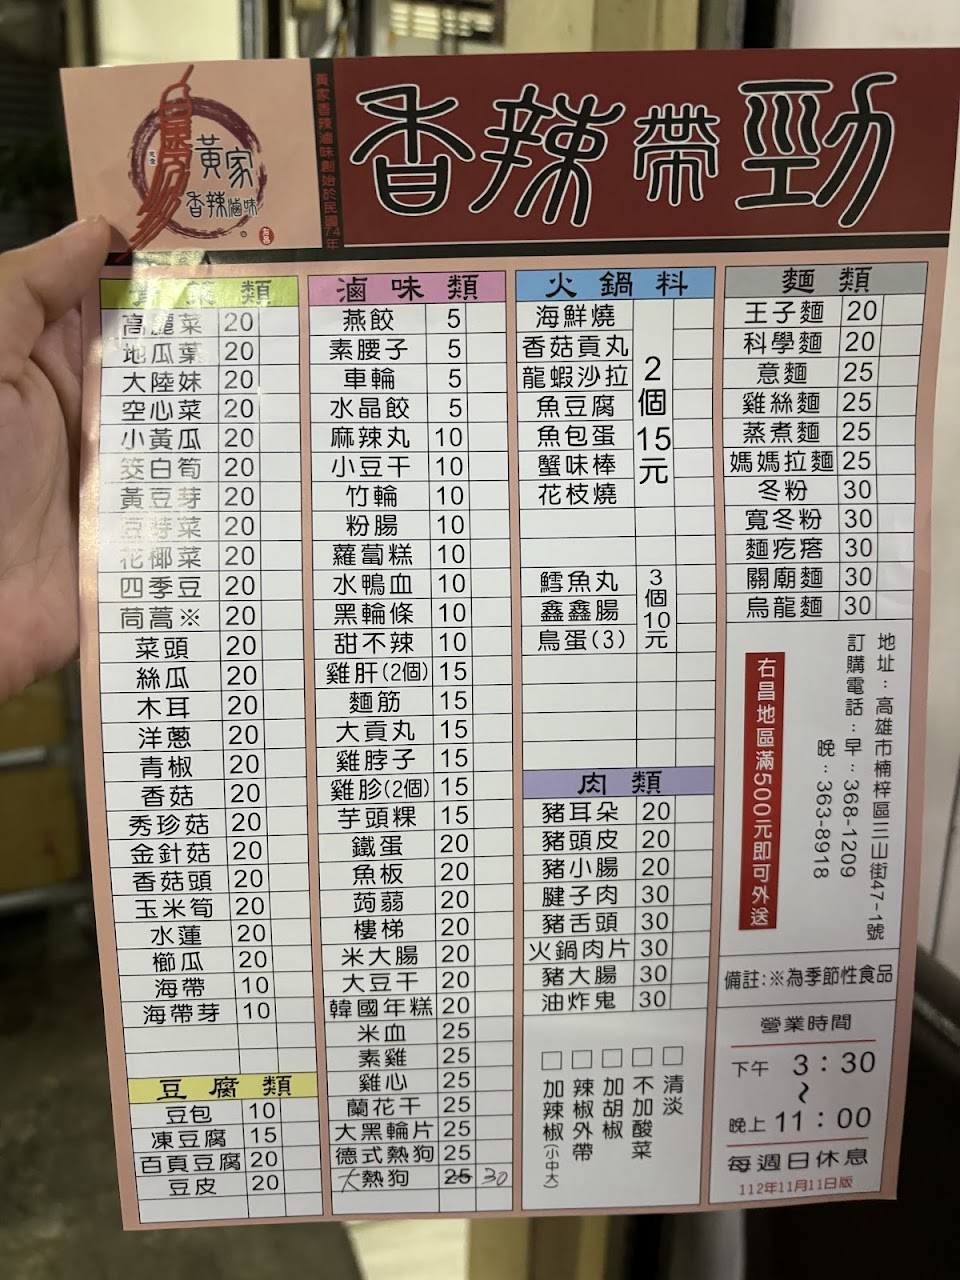 黃家
香辣滷味
右昌
黃家香辣滷味創始於民國74年
香辣帶勁
青菜類
高麗菜 20
地瓜葉 20
大陸妹 20
空心菜 20
小黃瓜 20
筊白筍 20
黃豆芽 20
豆芽菜 20
花椰菜 20
四季豆 20
茼蒿※ 20
菜頭 20
絲瓜 20
木耳 20
洋蔥 20
青椒 20
香菇 20
秀珍菇 20
金針菇 20
香菇頭 20
玉米筍 20
水蓮 20
櫛瓜 20
海帶 10
海帶芽 10
豆腐類
豆包 10
凍豆腐 15
百頁豆腐 20
豆皮 20
滷味類
燕餃 5
素腰子 5
車輪 5
水晶餃 5
麻辣丸 10
小豆干 10
竹輪 10
粉腸 10
蘿蔔糕 10
水鴨血 10
黑輪條 10
甜不辣 10
雞肝(2個) 15
麵筋 15
大貢丸 15
雞脖子 15
雞胗(2個) 15
芋頭粿 15
鐵蛋 20
魚板 20
蒟蒻 20
樓梯 20
米大腸 20
大豆干 20
韓國年糕 20
米血 25
素雞 25
雞心 25
蘭花干 25
大黑輪片 25
德式熱狗 25
大熱狗 25 30
火鍋料
海鮮燒
香菇貢丸
龍蝦沙拉
魚豆腐
魚包蛋
蟹味棒
花枝燒
2個15元
鱈魚丸
鑫鑫腸
鳥蛋(3)
3個10元
肉類
豬耳朵 20
豬頭皮 20
豬小腸 20
腱子肉 30
豬舌頭 30
火鍋肉片 30
豬大腸 30
油炸鬼 30
□清淡
□不加酸菜
□加胡椒
□辣椒外帶
□加辣椒(小中大)
麵類
王子麵 20
科學麵 20
意麵 25
雞絲麵 25
蒸煮麵 25
媽媽拉麵 25
冬粉 30
寬冬粉 30
麵疙瘩 30
關廟麵 30
烏龍麵 30
地址：高雄市楠梓區三山街47-1號
訂購電話：早：368-1209
晚：363-8918
右昌地區滿500元即可外送
備註:※為季節性食品
營業時間
下午 3：30
~
晚上 11：00
每週日休息
112年11月11日版